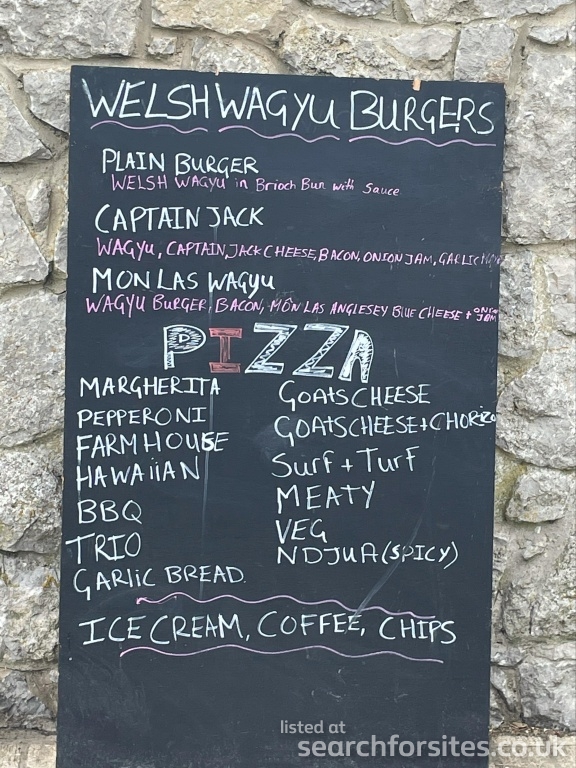 WELSH WAGYU BURGERS
PLAIN BURGER
WELSH WAGYU in Brioch Bun with Sauce
CAPTAIN JACK
WAGYU, CAPTAIN JACK CHEESE, BACON, ONION JAM, GARLIC
MON LAS WAGYU
WAGYU BURGER, BACON, MÔN LAS ANGLESEY BLUE CHEESE + ONION JAM
PIZZA
MARGHERITA
PEPPERONI
FARMHOUSE
HAWAIIAN
BBQ
TRIO
GARLIC BREAD.
GOATS CHEESE
GOATS CHEESE + CHORIZO
Surf + Turf
MEATY
VEG
NDJUA (SPICY)
ICE CREAM, COFFEE, CHIPS
listed at
searchforsites.co.uk